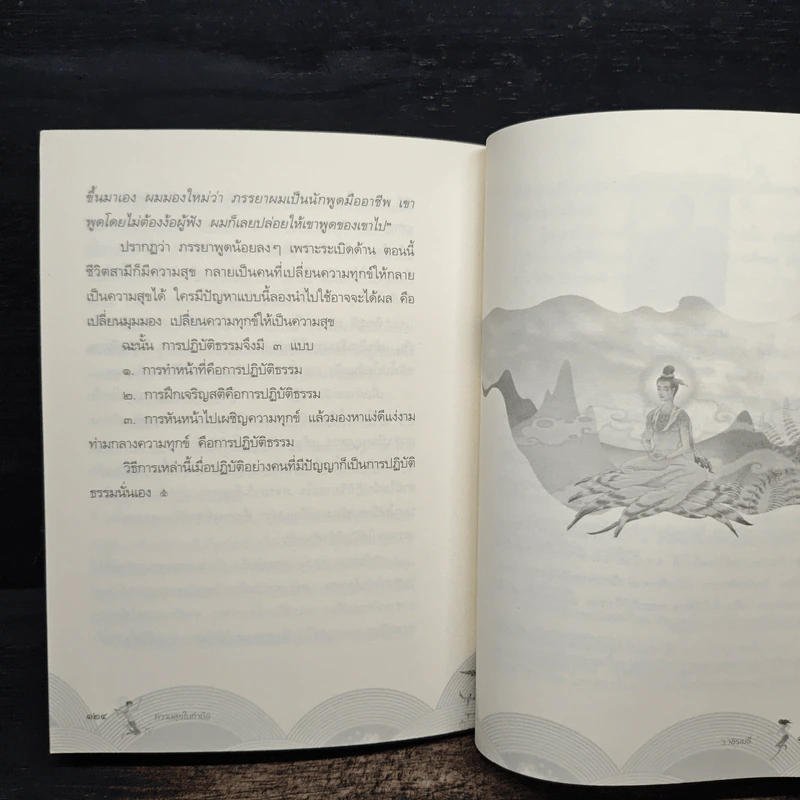 ขึ้นมาเอง ผมมองใหม่ว่า ภรรยาผมเป็นนักพูดมืออาชีพ เขา
พูดโดยไม่ต้องง้อผู้ฟัง ผมก็เลยปล่อยให้เขาพูดของเขาไป"
ปรากฏว่า ภรรยาพูดน้อยลงๆ เพราะระเบิดด้าน ตอนนี้
ชีวิตสามีก็มีความสุข กลายเป็นคนที่เปลี่ยนความทุกข์ให้กลาย
เป็นความสุขได้ ใครมีปัญหาแบบนี้ลองนำไปใช้อาจจะได้ผล คือ
เปลี่ยนมุมมอง เปลี่ยนความทุกข์ให้เป็นความสุข
ฉะนั้น การปฏิบัติธรรมจึงมี ๓ แบบ
๑. การทำหน้าที่คือการปฏิบัติธรรม
๒. การฝึกเจริญสติคือการปฏิบัติธรรม
๓. การหันหน้าไปเผชิญความทุกข์ แล้วมองหาแง่ดีแง่งาม
ท่ามกลางความทุกข์ คือการปฏิบัติธรรม
วิธีการเหล่านี้เมื่อปฏิบัติอย่างคนที่มีปัญญาก็เป็นการปฏิบัติ
ธรรมนั่นเอง
๑๒๔ ความสุขในกำมือ
ว.วชิรเมธี